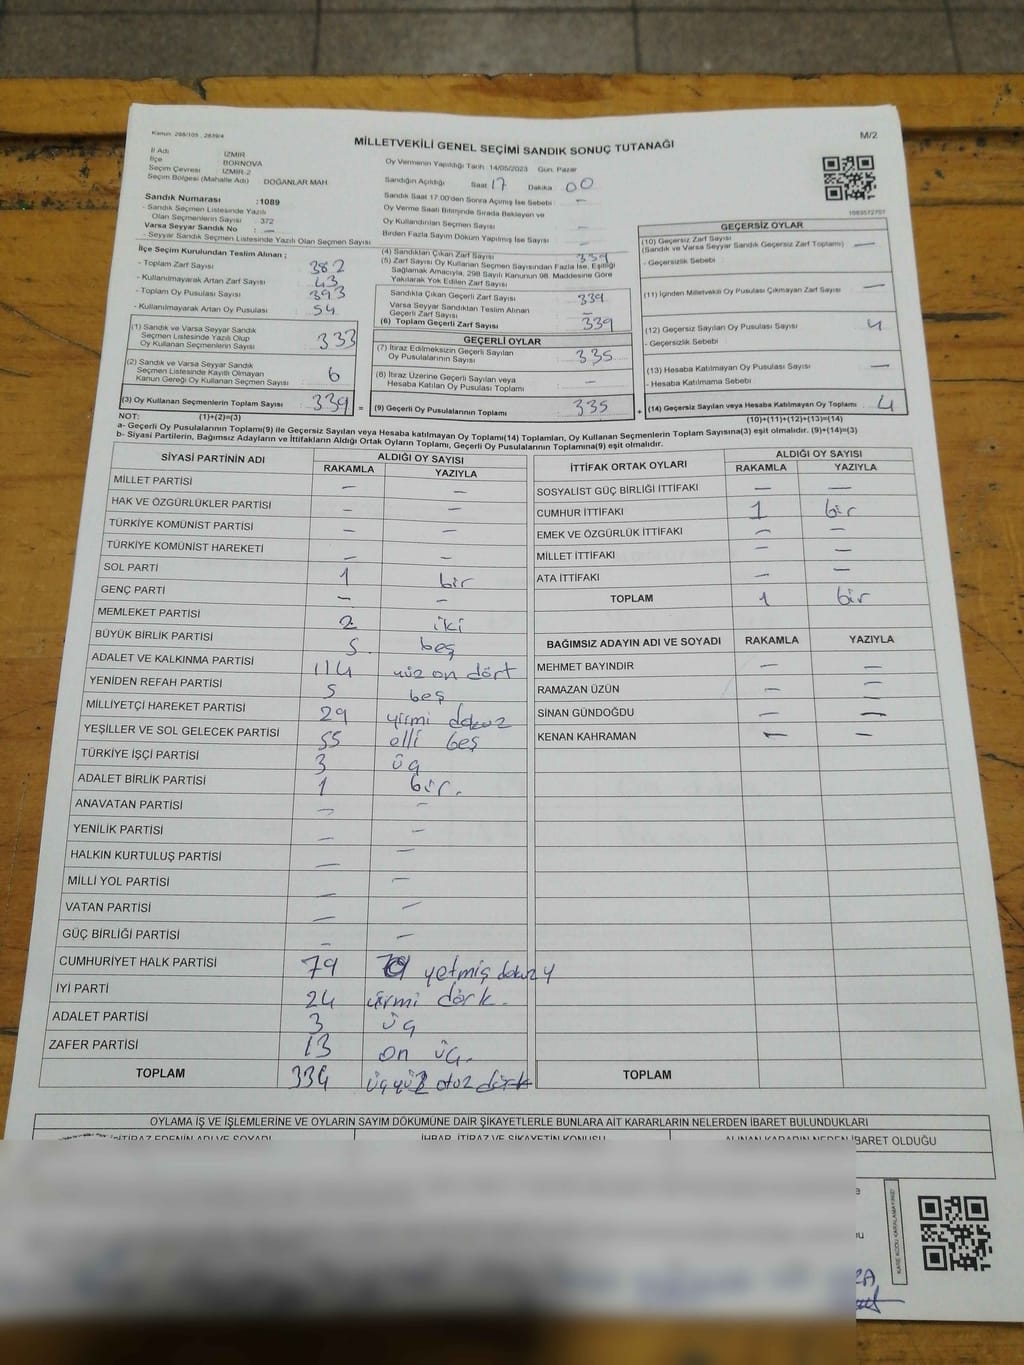 Kanun: 298/105 , 2839/4
M/2
MİLLETVEKİLİ GENEL SEÇİMİ SANDIK SONUÇ TUTANAĞI
İl Adı İZMİR
İlçe BORNOVA
Seçim Çevresi İZMİR-2
Seçim Bölgesi (Mahalle Adı) DOĞANLAR MAH.
Sandık Numarası :1089
- Sandık Seçmen Listesinde Yazılı
Olan Seçmenlerin Sayısı 372
Varsa Seyyar Sandık No : —
- Seyyar Sandık Seçmen Listesinde Yazılı Olan Seçmen Sayısı
Oy Vermenin Yapıldığı Tarih :14/05/2023 Gün: Pazar
Sandığın Açıldığı Saat 17 Dakika 00
Sandık Saat 17:00'den Sonra Açılmış İse Sebebi : —
Oy Verme Saati Bitiminde Sırada Bekleyen ve
Oy Kullandırılan Seçmen Sayısı —
Birden Fazla Sayım Döküm Yapılmış İse Sayısı —
İlçe Seçim Kurulundan Teslim Alınan ;
- Toplam Zarf Sayısı 382
- Kullanılmayarak Artan Zarf Sayısı 43
- Toplam Oy Pusulası Sayısı 393
- Kullanılmayarak Artan Oy Pusulası 54
(1) Sandık ve Varsa Seyyar Sandık
Seçmen Listesinde Yazılı Olup
Oy Kullanan Seçmenlerin Sayısı 333
(2) Sandık ve Varsa Seyyar Sandık
Seçmen Listesinde Kayıtlı Olmayan
Kanun Gereği Oy Kullanan Seçmen Sayısı 6
(3) Oy Kullanan Seçmenlerin Toplam Sayısı 339
(4) Sandıktan Çıkan Zarf Sayısı 339
(5) Zarf Sayısı Oy Kullanan Seçmen Sayısından Fazla İse, Eşitliği
Sağlamak Amacıyla, 298 Sayılı Kanunun 98. Maddesine Göre
Yakılarak Yok Edilen Zarf Sayısı
Sandıkta Çıkan Geçerli Zarf Sayısı 339
Varsa Seyyar Sandıktan Teslim Alınan
Geçerli Zarf Sayısı —
(6) Toplam Geçerli Zarf Sayısı 339
GEÇERLİ OYLAR
(7) İtiraz Edilmeksizin Geçerli Sayılan
Oy Pusulalarının Sayısı 335
(8) İtiraz Üzerine Geçerli Sayılan veya
Hesaba Katılan Oy Pusulası Toplamı —
= (9) Geçerli Oy Pusulalarının Toplamı 335
1083572757
GEÇERSİZ OYLAR
(10) Geçersiz Zarf Sayısı
(Sandık ve Varsa Seyyar Sandık Geçersiz Zarf Toplamı) —
- Geçersizlik Sebebi
(11) İçinden Milletvekili Oy Pusulası Çıkmayan Zarf Sayısı —
(12) Geçersiz Sayılan Oy Pusulası Sayısı 4
- Geçersizlik Sebebi :
(13) Hesaba Katılmayan Oy Pusulası Sayısı —
- Hesaba Katılmama Sebebi
+ (14) Geçersiz Sayılan veya Hesaba Katılmayan Oy Toplamı 4
NOT: (1)+(2)=(3) (10)+(11)+(12)+(13)=(14)
a- Geçerli Oy Pusulalarının Toplamı(9) ile Geçersiz Sayılan veya Hesaba katılmayan Oy Toplamı(14) Toplamları, Oy Kullanan Seçmenlerin Toplam Sayısına(3) eşit olmalıdır. (9)+(14)=(3)
b- Siyasi Partilerin, Bağımsız Adayların ve İttifakların Aldığı Ortak Oyların Toplamı, Geçerli Oy Pusulalarının Toplamına(9) eşit olmalıdır.
SİYASİ PARTİNİN ADI ALDIĞI OY SAYISI
RAKAMLA YAZIYLA
MİLLET PARTİSİ — —
HAK VE ÖZGÜRLÜKLER PARTİSİ — —
TÜRKİYE KOMÜNİST PARTİSİ — —
TÜRKİYE KOMÜNİST HAREKETİ — —
SOL PARTİ 1 bir
GENÇ PARTİ — —
MEMLEKET PARTİSİ 2 iki
BÜYÜK BİRLİK PARTİSİ 5 beş
ADALET VE KALKINMA PARTİSİ 114 yüz on dört
YENİDEN REFAH PARTİSİ 5 beş
MİLLİYETÇİ HAREKET PARTİSİ 29 yirmi dokuz
YEŞİLLER VE SOL GELECEK PARTİSİ 55 elli beş
TÜRKİYE İŞÇİ PARTİSİ 3 üç
ADALET BİRLİK PARTİSİ 1 bir.
ANAVATAN PARTİSİ — —
YENİLİK PARTİSİ — —
HALKIN KURTULUŞ PARTİSİ — —
MİLLİ YOL PARTİSİ — —
VATAN PARTİSİ — —
GÜÇ BİRLİĞİ PARTİSİ — —
CUMHURİYET HALK PARTİSİ 79 yetmiş dokuz
İYİ PARTİ 24
ADALET PARTİSİ 3 üç
ZAFER PARTİSİ 13 on üç.
TOPLAM 334
İTTİFAK ORTAK OYLARI ALDIĞI OY SAYISI
RAKAMLA YAZIYLA
SOSYALİST GÜÇ BİRLİĞİ İTTİFAKI — —
CUMHUR İTTİFAKI 1 bir
EMEK VE ÖZGÜRLÜK İTTİFAKI — —
MİLLET İTTİFAKI — —
ATA İTTİFAKI — —
TOPLAM 1 bir
BAĞIMSIZ ADAYIN ADI VE SOYADI RAKAMLA YAZIYLA
MEHMET BAYINDIR — —
RAMAZAN ÜZÜN — —
SİNAN GÜNDOĞDU — —
KENAN KAHRAMAN — —
TOPLAM
OYLAMA İŞ VE İŞLEMLERİNE VE OYLARIN SAYIM DÖKÜMÜNE DAİR ŞİKAYETLERLE BUNLARA AİT KARARLARIN NELERDEN İBARET BULUNDUKLARI
İTİRAZ EDENİN ADI VE SOYADI İHBAR, İTİRAZ VE ŞİKAYETİN KONUSU ALINAN KARARIN NEDEN İBARET OLDUĞU
KARE KODU KARALAMAYINIZ!